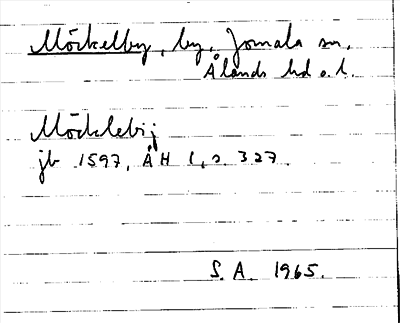 Möckelby, by, Jomala sn,
Ålands hd o. l.
Möcklebij
jb 1597, ÅH 1, s. 327.
S. A. 1965.